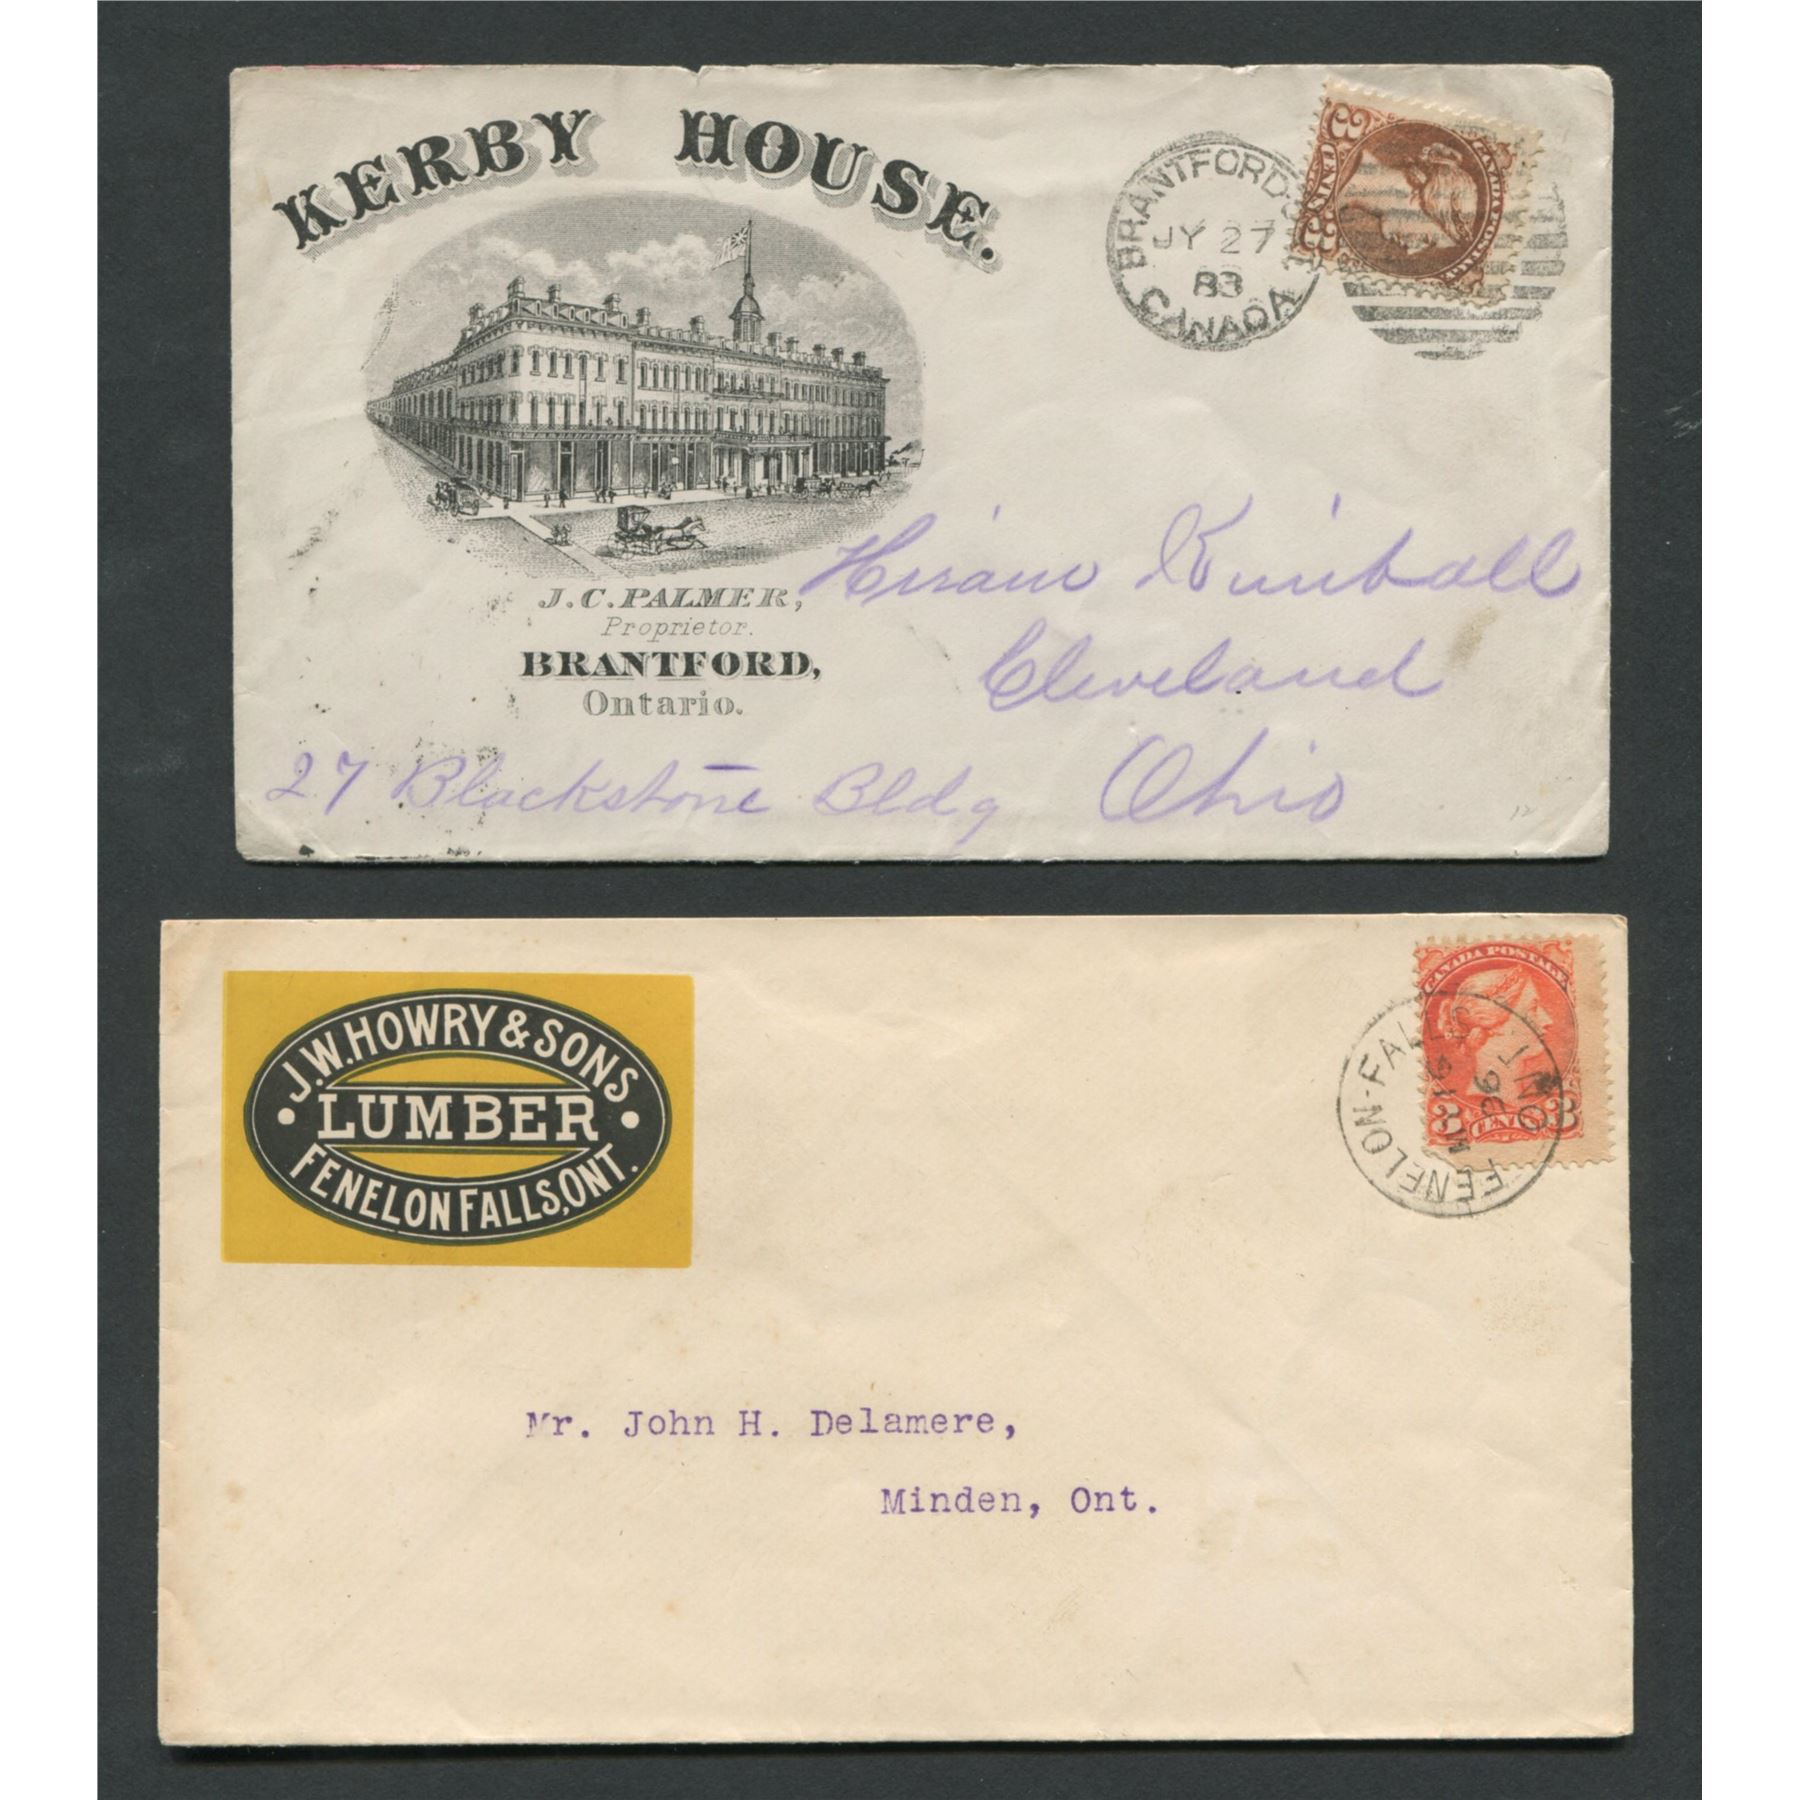 KERBY HOUSE.
BRANTFORD
JY 27
83
CANADA
J. C. PALMER,
Proprietor.
BRANTFORD,
Ontario.
Hiram Kimball
Cleveland
Ohio
27 Blackstone Bldg
12
J. W. HOWRY & SONS
LUMBER
FENELON FALLS, ONT.
CANADA POSTAGE
3 CENTS 3
FENELON-FALLS
96
ONT
Mr. John H. Delamere,
Minden, Ont.